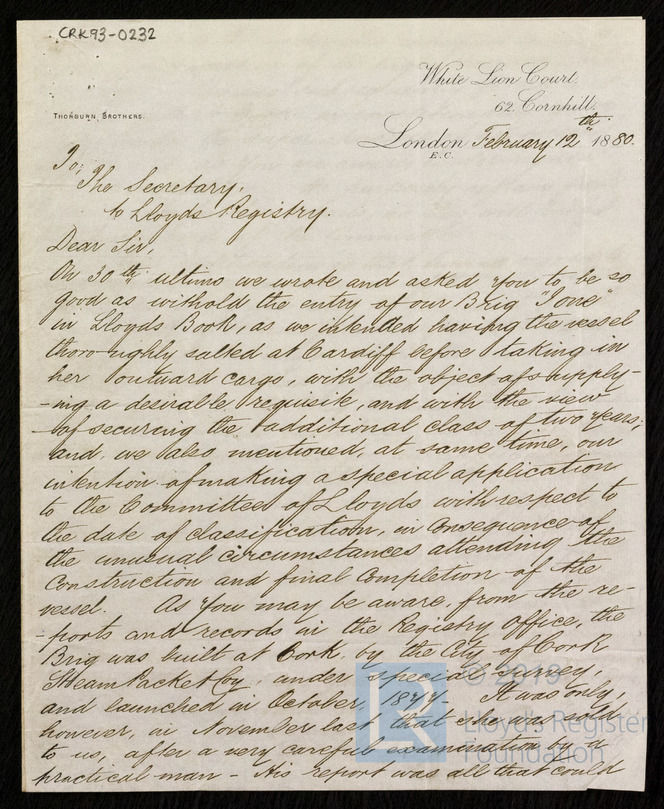 CRK93-0232
THORBURN BROTHERS.
White Lion Court.
62, Cornhill.
London February 12th 1880.
E.C.
To;
The Secretary,
to Lloyds Registry.
Dear Sir,
On 30th ultimo we wrote and asked you to be so
good as withold the entry of our Brig "Ione"
in Lloyds Book, as we intended having the vessel
thoroughly salted at Cardiff before taking in
her outward cargo, with the object of supply-
-ing a desirable requisite, and with the view
of securing the additional class of two years;
and we also mentioned, at same time, our
intention of making a special application
to the Committee of Lloyds with respect to
the date of classification, in consequence of
the unusual circumstances attending the
construction and final completion of the
vessel. As you may be aware, from the re-
-ports and records in the Registry Office, the
Brig was built at Cork, by the City of Cork
Steam Packet Coy, under special survey,
and launched in October, 1877 - It was only,
however, in November last that she was sold
to us, after a very careful examination by a
practical man - His report was all that could
© 2019
Lloyd's Register
Foundation
LR